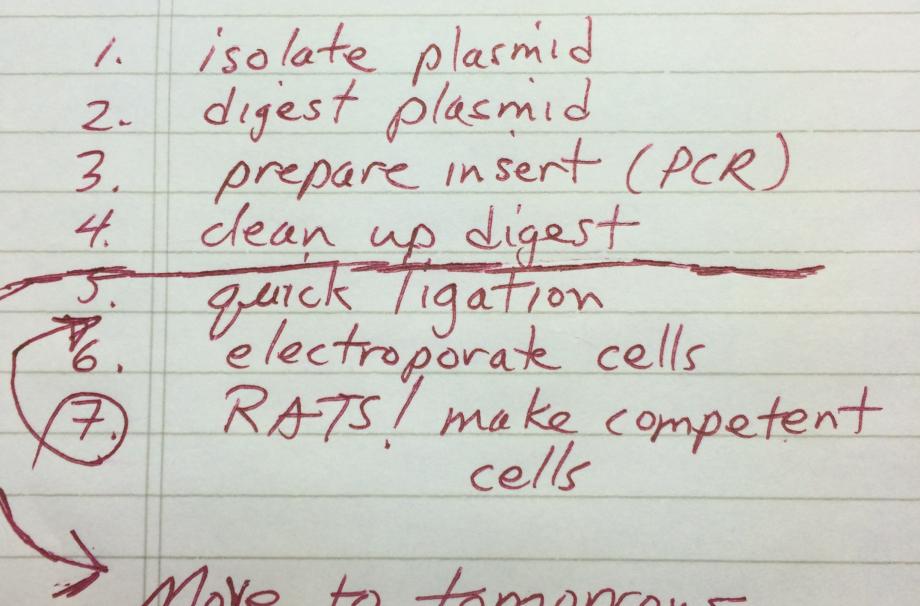 1. isolate plasmid
2. digest plasmid
3. prepare insert (PCR)
4. clean up digest
5. quick ligation
6. electroporate cells
7. RATS! make competent
cells
Move to tomorrow